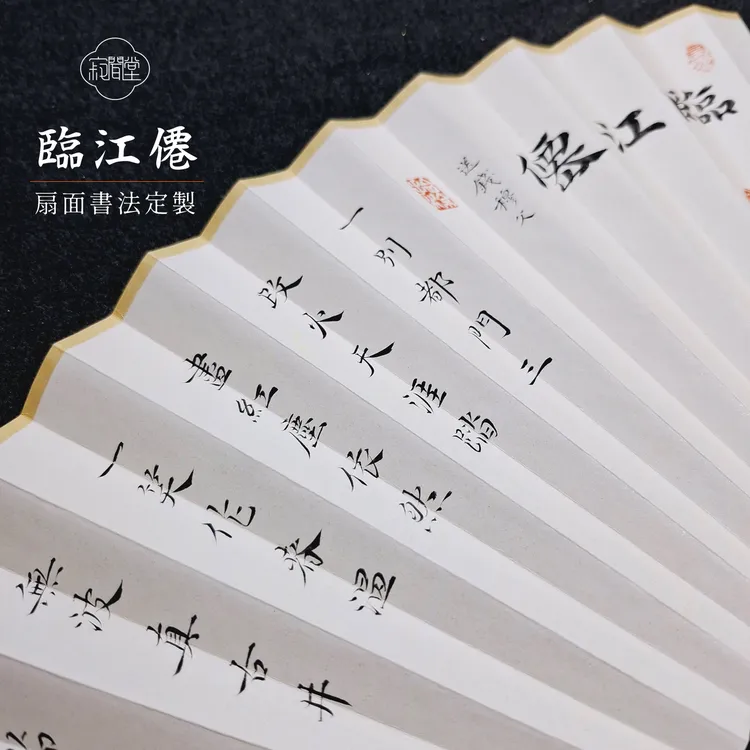 寂間堂
臨江僊
扇面書法定製
臨江僊
送錢穆父
一別都門三
改火天涯踏
盡紅塵依然
一笑作春溫
無波真古井